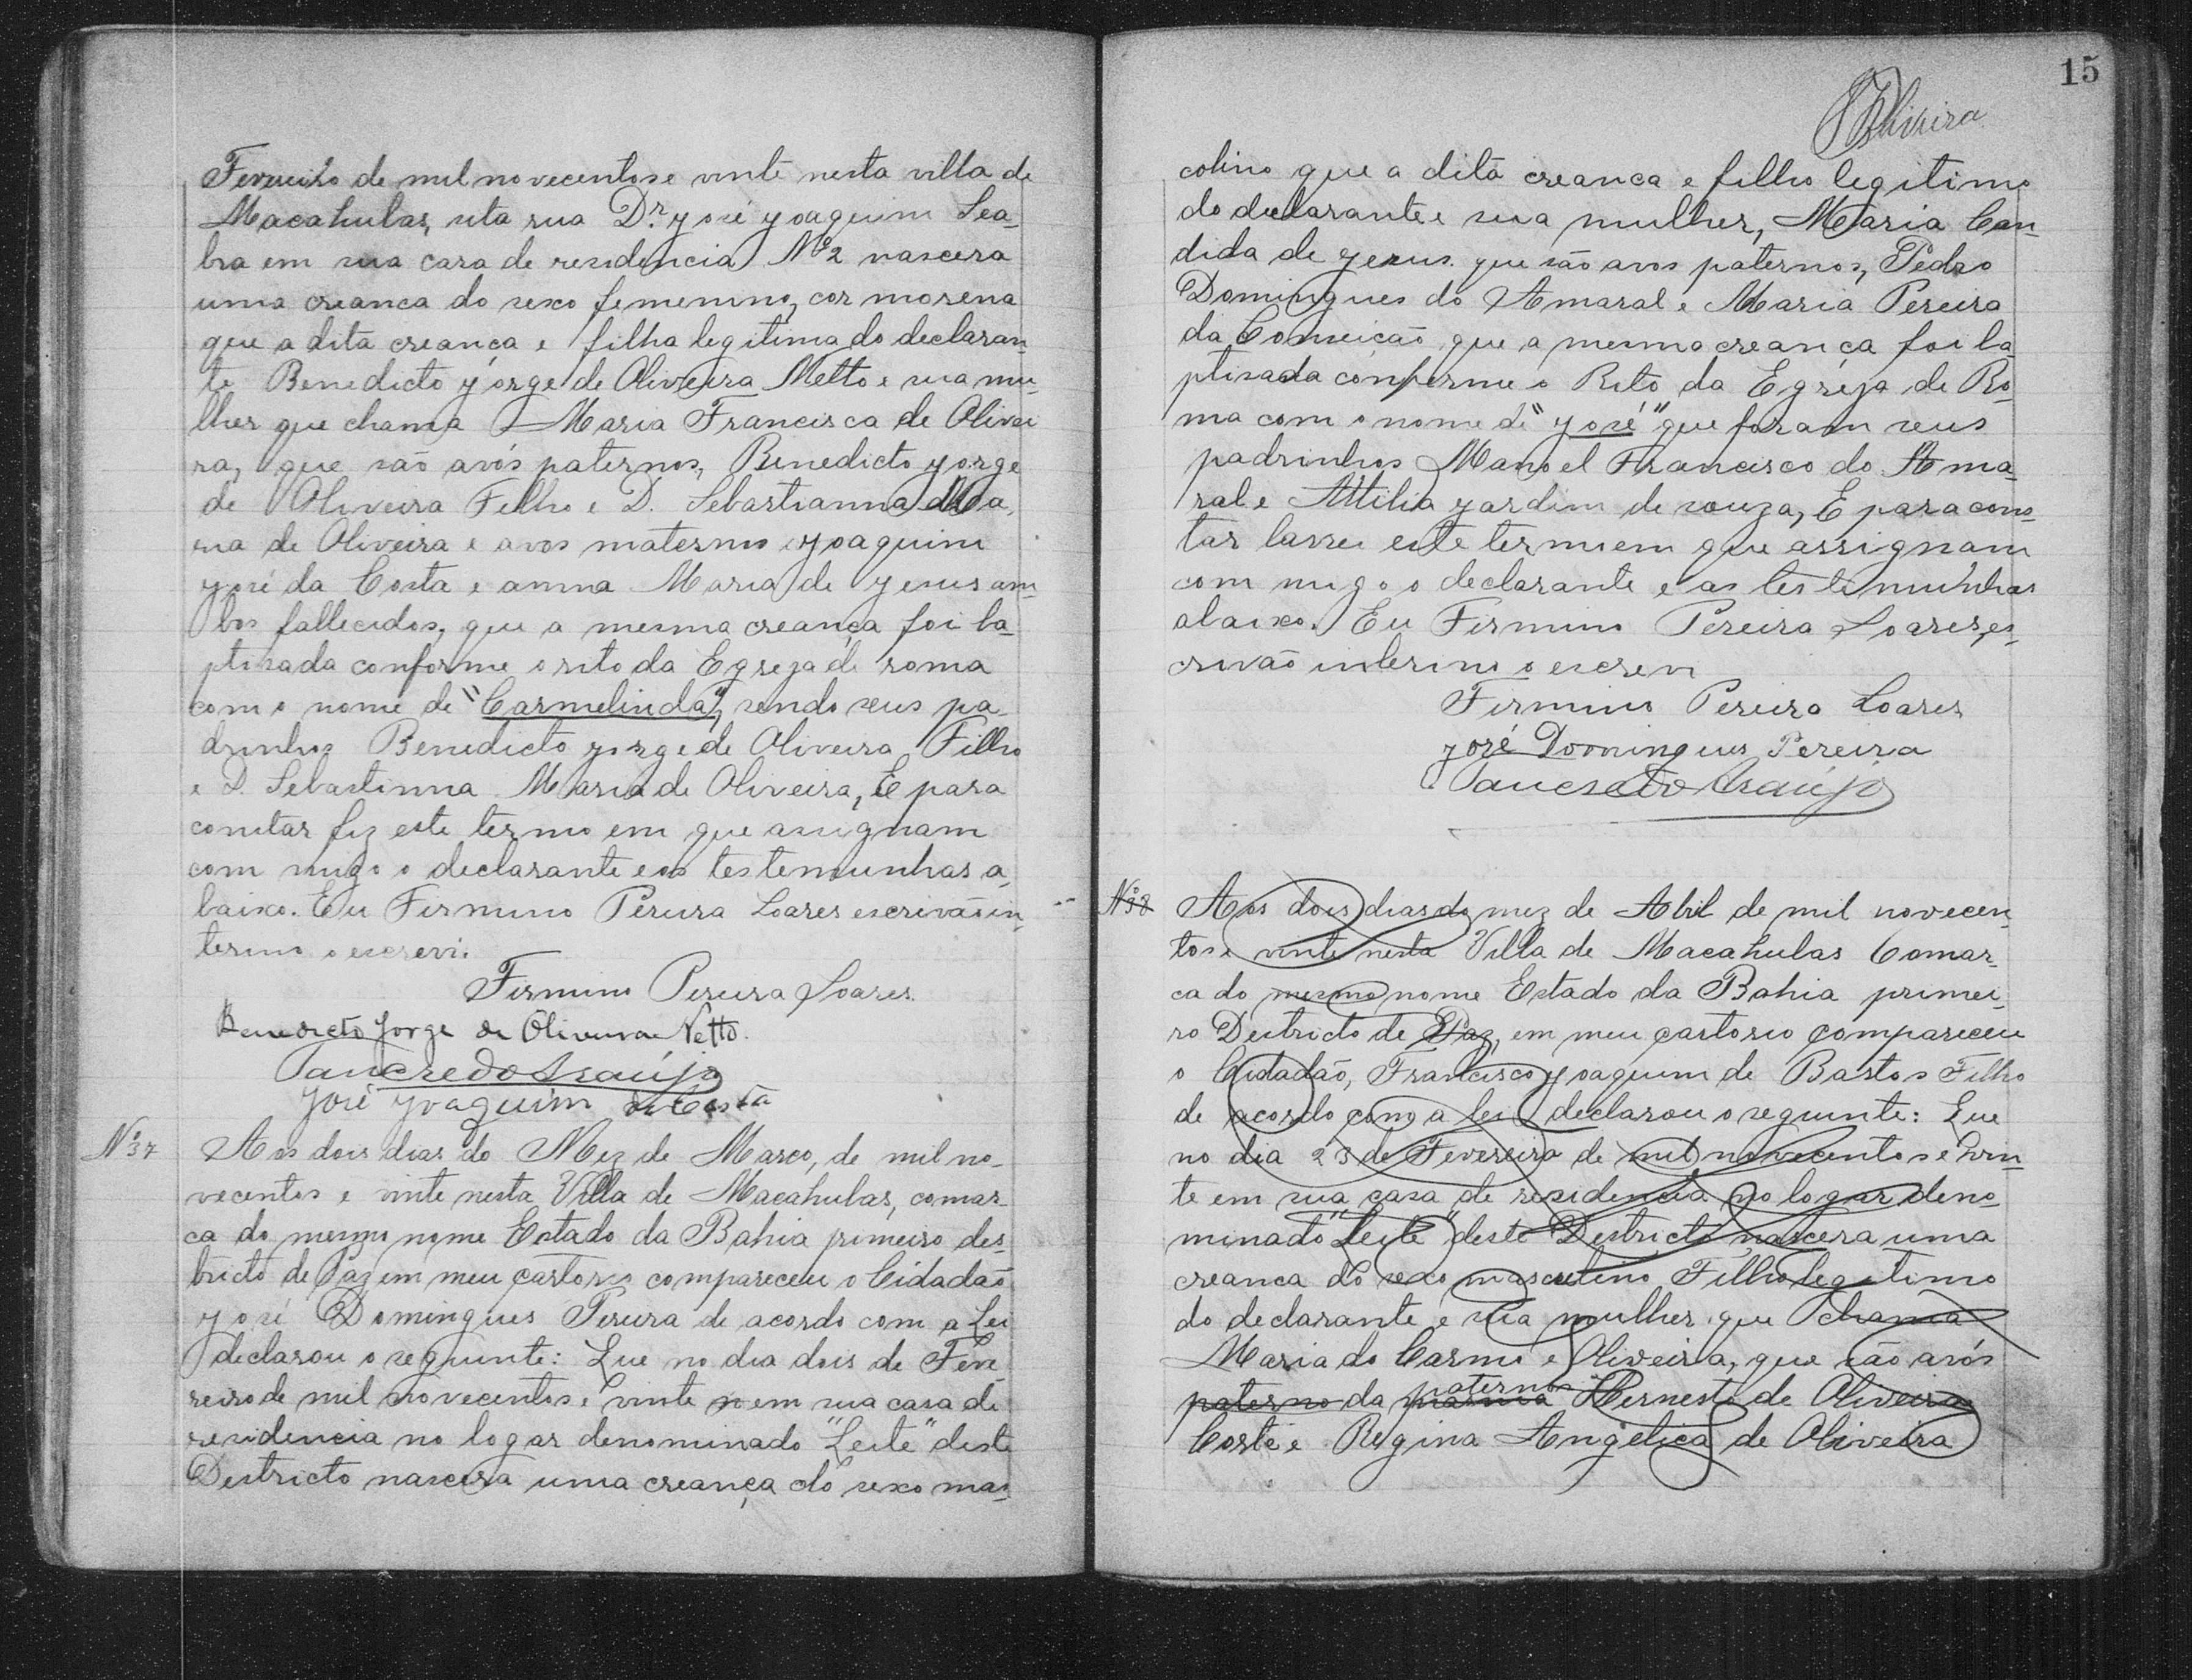 Fevereiro de mil novecentos e vinte nesta villa de
Macahubas, sita rua Dr. José Joaquim Sea-
bra em sua casa de residencia Nº 2 nascera
uma creanca do sexo femenino, cor morena
que a dita creança e filha legitima do declaran-
te Benedicto Jorge de Oliveira Netto e sua mu-
lher que chama Maria Francisca de Olivei
ra, que são avós paternos, Benedicto Jorge
de Oliveira Filho e D. Sebastianna Ma-
ria de Oliveira e avos maternos Joaquim
José da Costa e anna Maria de Jesus am-
bos fallecidos, que a mesma creança foi ba-
ptisada conforme o rito da Egreja de roma
com o nome de "Carmelinda", sendo seus pa-
drinhos Benedicto Jorge de Oliveira Filho
e D. Sebastinna Maria de Oliveira, E para
constar fiz este termo em que assignam
com migo o declarante e as testemunhas a-
baixo. Eu Firmino Pereira Soares escrivão in-
terino o escrevi.
Firmino Pereira Soares.
Benedicto Jorge de Oliveira Netto.
Tancredo Araújo
José Joaquim da Costa
Nº 37 Aos dois dias do Mez de Marco, de mil no-
vecentos e vinte nesta Villa de Macahubas, comar-
ca do mesmo nome Estado da Bahia primeiro des-
tricto de Paz em meu cartorio compareceu o Cidadão
José Domingues Pereira de acordo com a Lei
declarou o seguinte: Que no dia dois de Feve-
reiro de mil novecentos e vinte em sua casa de
residencia no logar denominado "Leite" deste
Destricto nascera uma creança do sexo mas-
15
Oliveira
colino que a dita creanca e filho legitimo
do declarante e sua mulher, Maria Can-
dida de Jesus que são avos paternos, Pedro
Domingues do Amaral e Maria Pereira
da Conceição que a mesma creança foi ba-
ptisada conforme o Rito da Egreja de Ro-
ma com o nome de "José" que foram seus
padrinhos Manoel Francisco do Ama-
ral e Attilia Jardim de souza, E para cons-
tar lavrei este termo em que assignam
com migo o declarante e as testemunhas
abaixo. Eu Firmino Pereira Soares, es-
crivão interino o escrevi
Firmino Pereira Soares
José Domingues Pereira
Tancredo Araújo
Nº 38 Aos dois dias do mez de Abril de mil novecen-
tos e vinte nesta Villa de Macahubas Comar-
ca do mesmo nome Estado da Bahia primei-
ro Destricto de Paz, em meu cartorio compareceu
o Cidadão, Francisco Joaquim de Bastos Filho
de acordo com a lei declarou o seguinte: Que
no dia 23 de Fevereiro de mil novecentos e vin-
te em sua casa de residencia no logar deno-
minado "Leite" deste Destricto nascera uma
creanca do sexo masculino Filho legitimo
do declarante e sua mulher que chama
Maria do Carmo e Oliveira, que são avós
paterno da paterno Hernesto de Oliveira
Coste e Regina Angelica de Oliveira